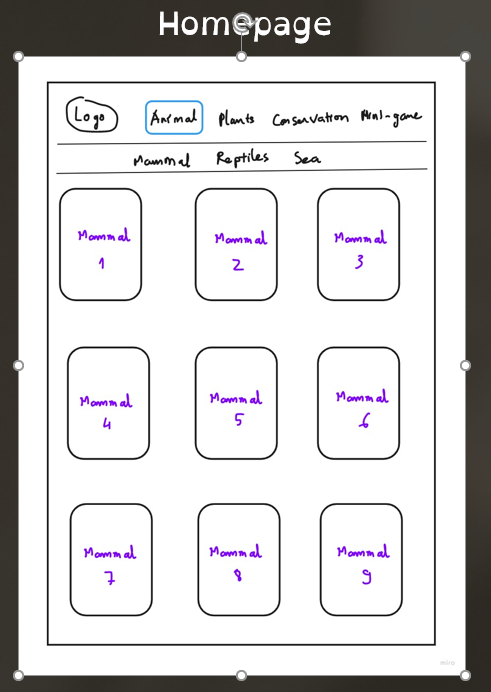 Homepage
Logo Animal Plants Conservation Mini-game
Mammal Reptiles Sea
Mammal 1
Mammal 2
Mammal 3
Mammal 4
Mammal 5
Mammal 6
Mammal 7
Mammal 8
Mammal 9
miro